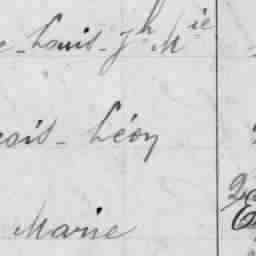 -Louis-Jh Mie
çois-Léon
Marie